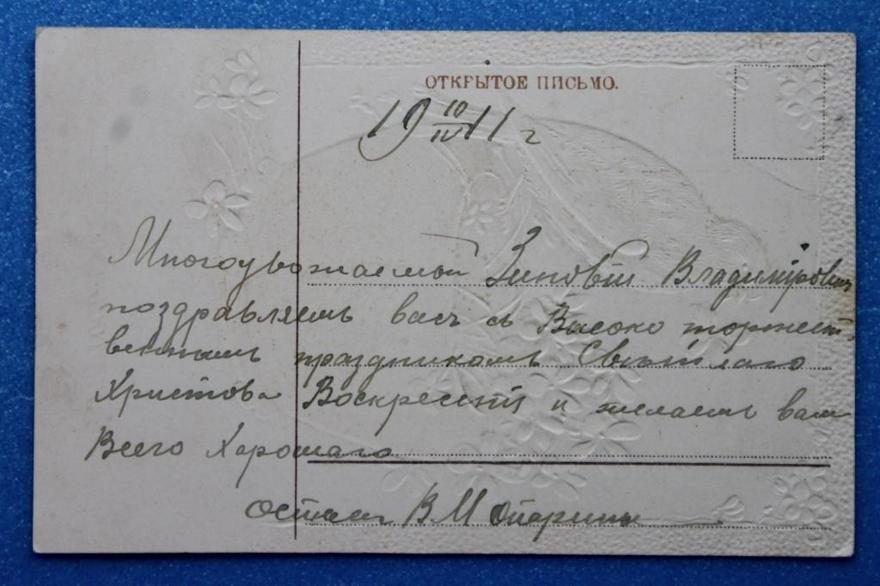 ОТКРЫТОЕ ПИСЬМО.
19 10/IV 11 г
Многоуважаемый Зиновiй Владимiрович
поздравляемъ васъ съ Высоко торжест
веннымъ праздникомъ Свѣтлаго
Христова Воскресенiя и желаемъ вам
Всего Хорошаго
В М Опарины